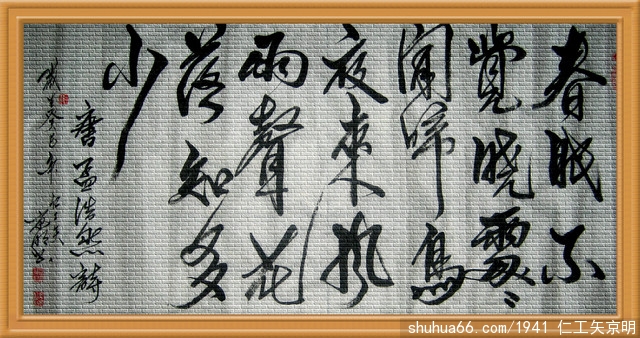 春眠不
覺曉處〻
聞啼鳥
夜來風
雨聲花
落知多
少
書孟浩然詩
shuhua66.com/1941 仁工矢京明